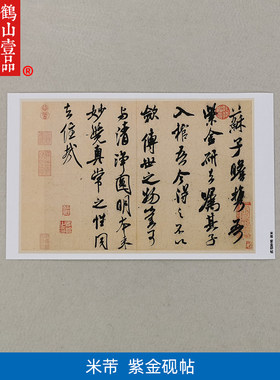 鹤山壹品®
蘇子瞻携吾
紫金研去嘱其子
入棺吾今得之不以
歛傳世之物豈可
与清淨圓明本来
妙覺真常之性同
去住哉
米芾 紫金砚帖